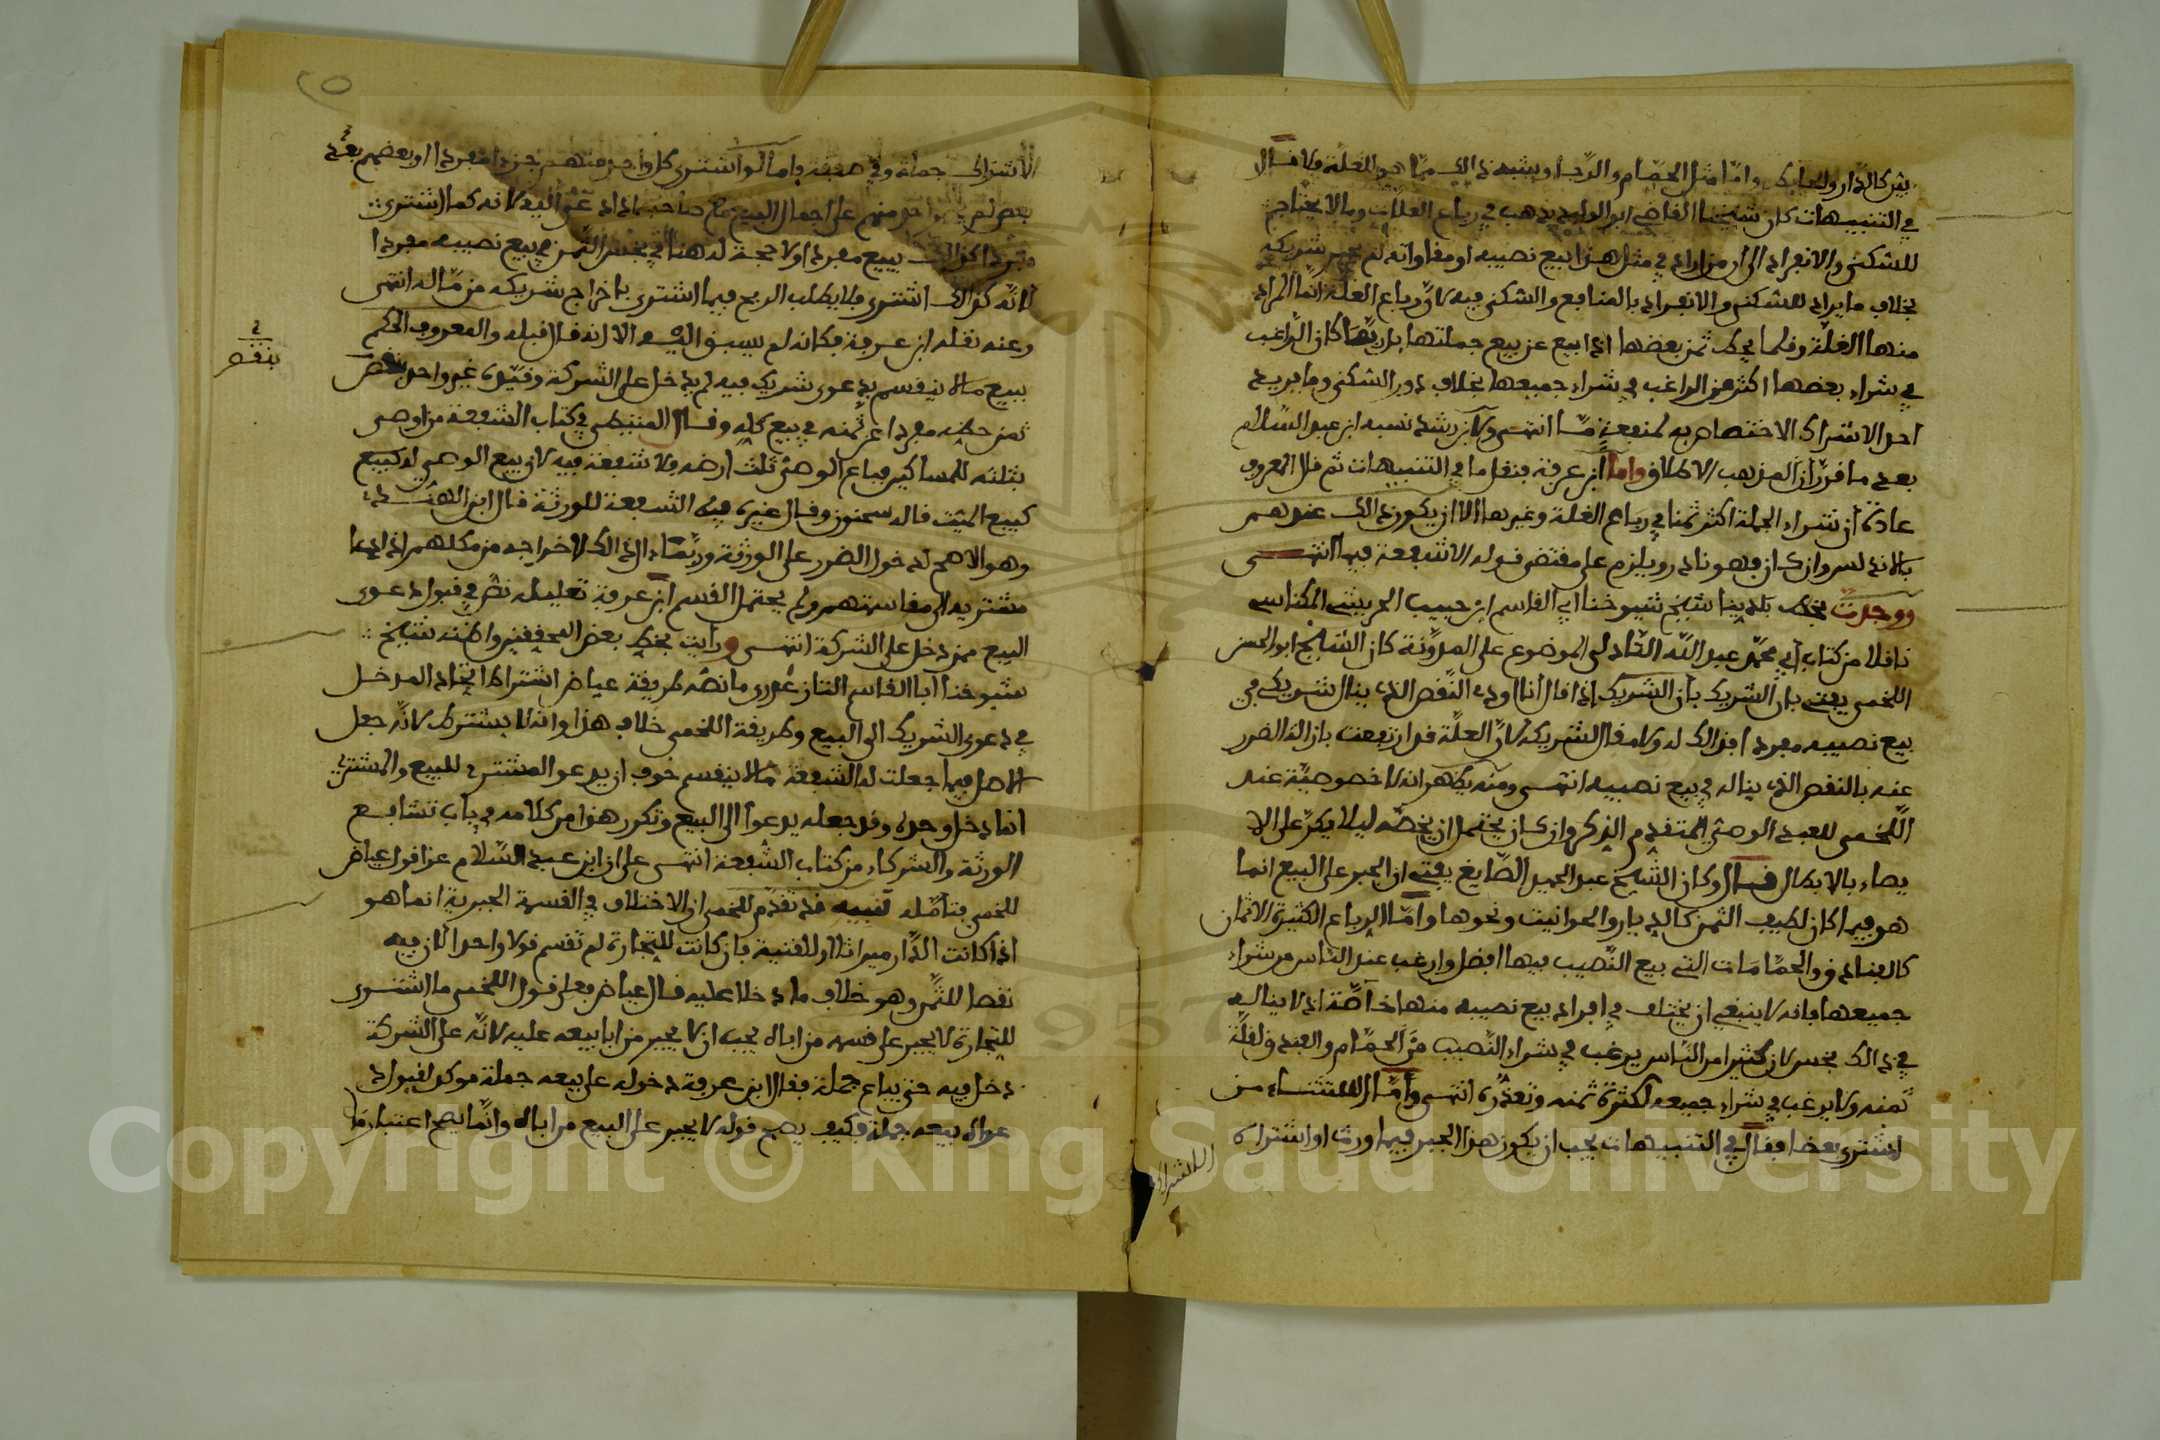 بين كالدار والحايط واما مثل الحمام والرحا ويشبه ذالك مما هو للغلة فلا قال
في التنبيهات كان شيخنا القاضي ابو الوليد يذهب في رباع الغلات وما لا يحتاج
للسكنى والانفراد الى ان من اراد في مثل هذا بيع نصيبه او مقاواته لم يجبر شريكه
بخلاف ما يراد للسكنى والانفراد بالمنافع والسكنى فيه لان رباع الغلة انما المراد
منها الغلة وقلما يحط ثمن بعضها اذا بيع عن بيع جملتها بل ربما كان الراغب
في شراء بعضها اكثر من الراغب في شراء جميعها بخلاف دور السكنى وما يريد
احد الاشراك الاختصاص به لمنفعة ما انتهى ولابن رشد نسبه ابن عبد السلام
بعد ما قرر ان المذهب الاطلاق واما ابن عرفة فنقل ما في التنبيهات ثم قال المعروف
عادة ان شراء الجملة اكثر ثمنا في رباع الغلة وغيرها الا ان يكون ذالك عندهم
بالاندلس وان كان فهو نادر ويلزم على مقتضى قوله الا شفعة فيها انتهى
ووجدت بخط بلدينا شيخ شيوخنا ابي القاسم ابن حبيب الحريشي المكناسي
ناقلا من كتاب ابي محمد عبد الله الشاذلي الموضوع على المدونة كان الشيخ ابو الحسن
اللخمي يفتي بان الشريك بأن الشريك اذا قال أنا اودي النقص الذي ينال شريكي في
بيع نصيبه مفردا فذالك له ولا مقال لشريكه لان العلة قد ارتفعت بازالة الضرر
عنه بالنقص الذي يناله في بيع نصيبه انتهى ومنه يظهر انه لا خصوصية عند
اللخمي للعبد الوصي المتقدم الذكر وان كان يحتمل ان يخصه ليلا يكر على الا
يصاء بالابطال قال وكان الشيخ عبد الحميد الصايغ يفتي ان الجبر على البيع انما
هو فيما كان لطيف الثمن كالديار والحوانيت ونحوها واما الرباع الكثيرة الاثمان
كالفنادق والحمامات التي بيع النصيب فيها افضل وارغب عند الناس من شراء
جميعها فانه لا ينبغي ان يختلف في افراد بيع نصيبه منها خاصة اذ لا يناله
في ذالك بخس لان كثيرا من الناس يرغب في شراء النصيب من الحمام والفندق لقلة
ثمنه ولا يرغب في شراء جميعه لكثرة ثمنه وتعذره انتهى واما الاستثناء من
اشترى بعضا فقال في التنبيهات يجب ان يكون هذا الجبر فيما ورث او اشتراه
الاشراك
الاشراك جملة وفي صفقة واما لو اشترى كل واحد منهم جزءا مفردا او بعضهم بعد
بعض لم يجبر احد منهم على اجمال البيع مع صاحبه اذا دعى اليه لانه كما اشترى
مفردا كذالك يبيع مفردا ولا حجة له هنا في بخس الثمن في بيع نصيبه مفردا
لانه كذالك اشترى فلا يطلب الربح فيما اشترى باخراج شريكه من ماله انتهى
وعنه نقله ابن عرفة فكانه لم يسبق اليه الا انه قال قبله والمعروف الحكم
ببيع مالا ينقسم بدعوى شريك فيه لم يدخل على الشركة وقيده غير واحد بنقص
بنقص
ثمن حظه مفردا عن ثمنه في بيع كله وقال المتيطي في كتاب الشفعة من اوصى
بثلثه للمساكين فباع الوصي ثلث ارضه فلا شفعة فيه لان بيع الوصي له كبيع
كبيع الميت قاله سحنون وقال غيره فيه الشفعة للورثة قال ابن الهندي
وهو الاصح لدخول الضرر على الورثة وربما ءال ذالك لاخراجهم من ملكهم اذ ادعا
مشتريه الى مقاسمتهم ولم يحتمل القسم ابن عرفة تعليله نص في قبول دعوى
البيع ممن دخل على الشركة انتهى ورأيت بخط بعض المحققين واظنه شيخ
شيوخنا ابا القاسم التازغدري ما نصه طريقة عياض اشتراط اتحاد المدخل
في دعوى الشريك الى البيع وطريقة اللخمي خلاف هذا وانه لا يشترط لانه جعل
الاصل فيما جعلت له الشفعة مما لا ينقسم خوف ان يدعو المشتري للبيع والمشتري
انما دخل وحده وقد جعله يدعوا الى البيع وتكرر هذا من كلامه في باب تشافع
الورثة والشركاء من كتاب الشفعة انتهى على ان ابن عبد السلام عزا قول عياض
للخمي فتأمله تنبيه قد تقدم للخمي ان الاختلاف في القسمة الجبرية انما هو
اذا كانت الدار ميراثا او للقنية فان كانت للتجارة لم تقسم قولا واحدا لان فيه
نقصا للثمن وهو خلاف ما دخلا عليه قال عياض فعلى قول اللخمي ما اشترى
للتجارة لا يجبر على قسمه من اباه يجب ان لا يجبر من ابا بيعه عليه لانه على الشركة
دخل فيه حتى يباع جملة فقال ابن عرفة دخوله على بيعه جملة موكد لقبول د
عواه بيعه جملة فكيف يصح قوله لا يجبر على البيع من اباه وانما يصح اعتبار ما
Copyright © King Saud University
1957